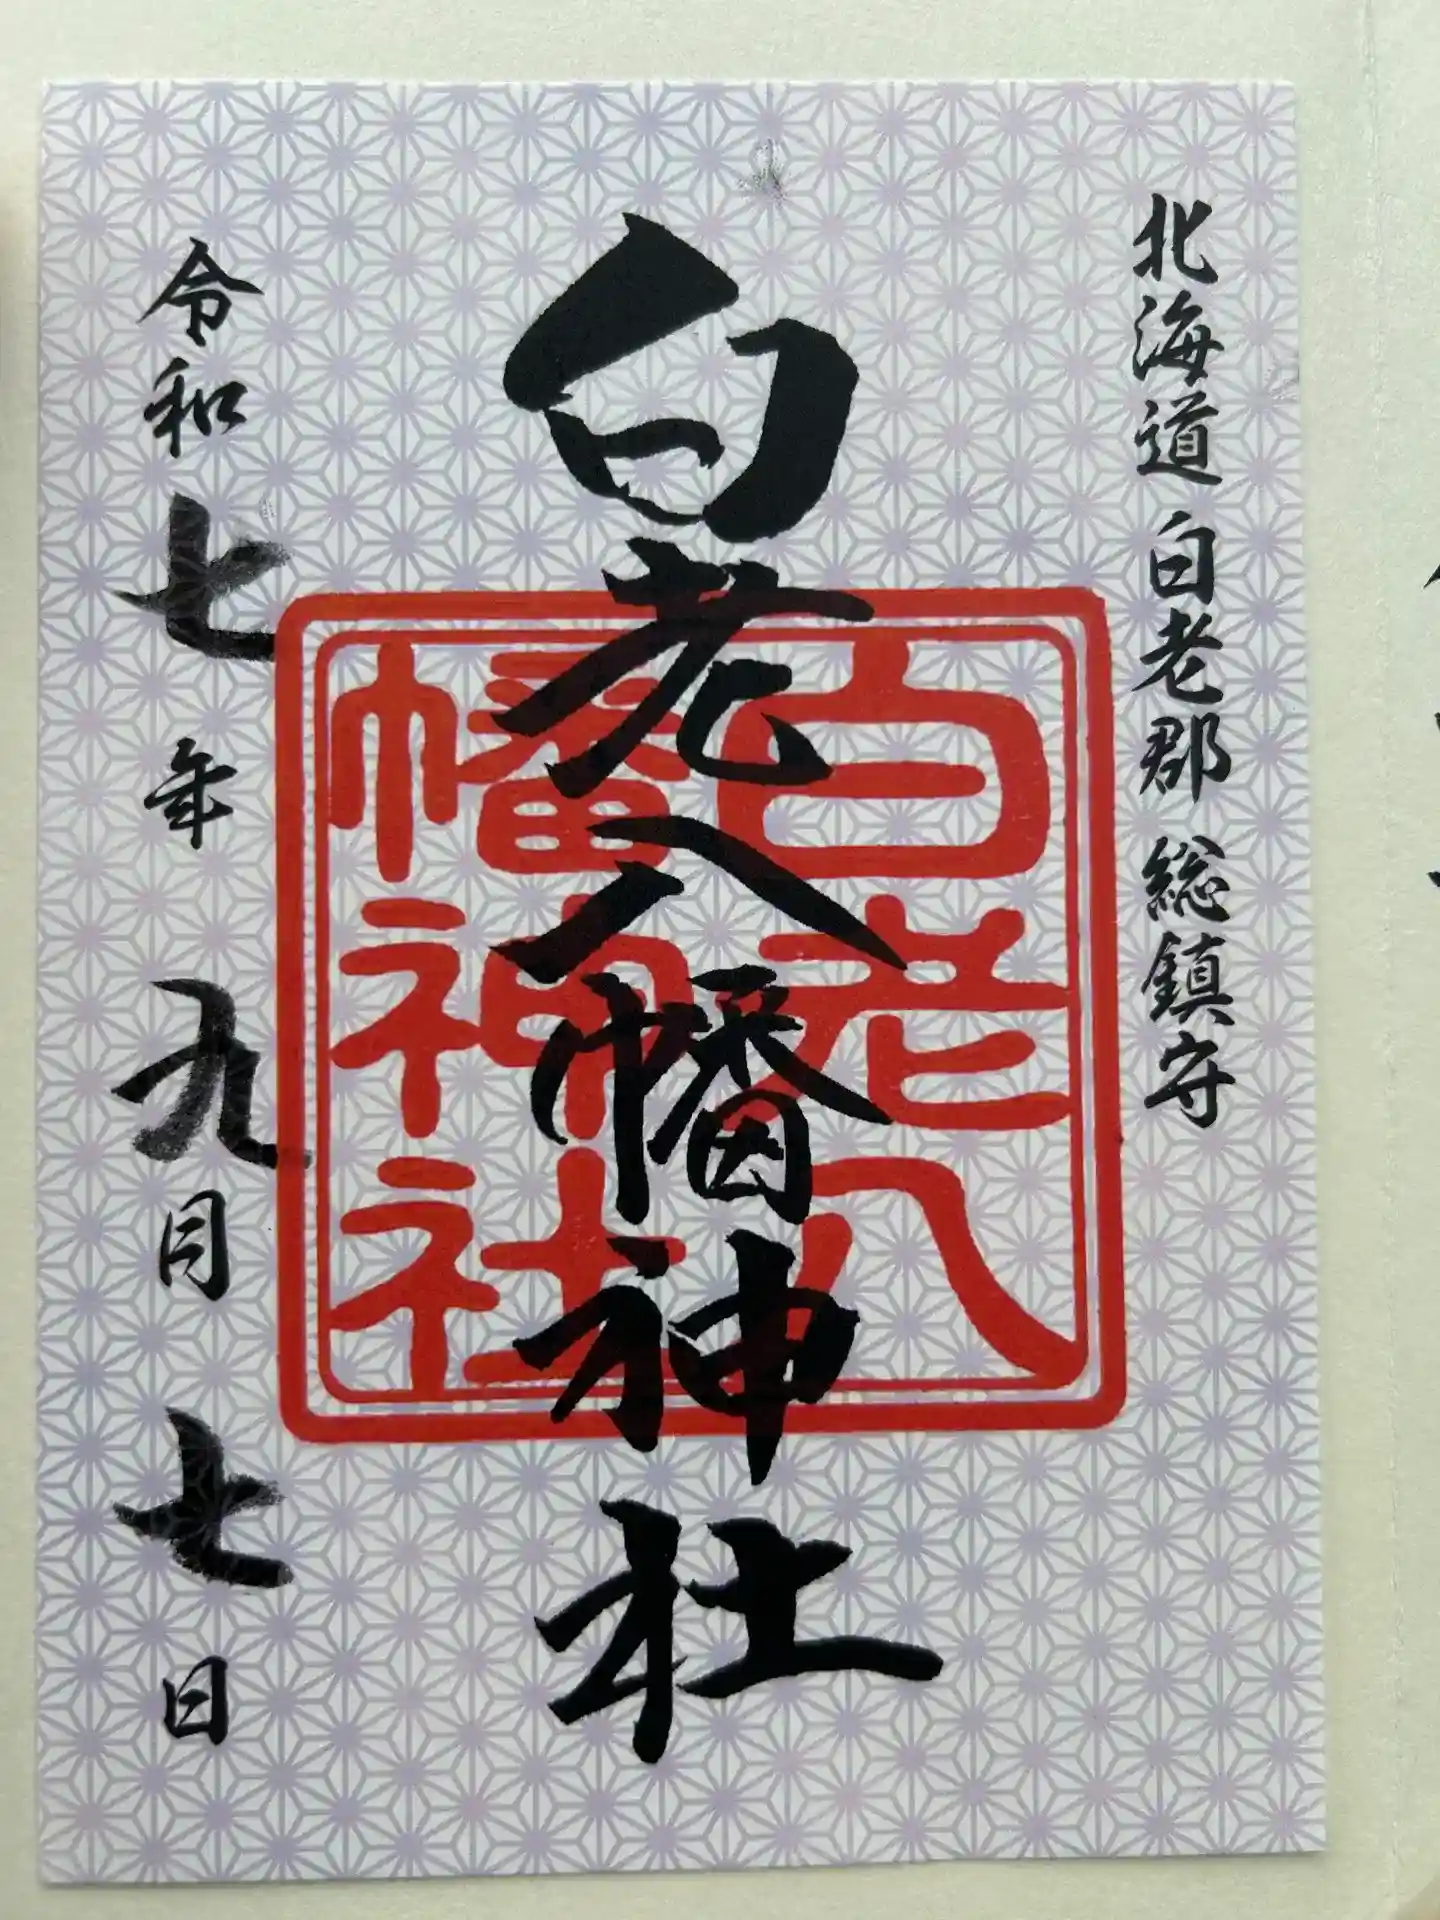 北海道 白老郡 総鎮守
白老八幡神社
白老八
幡神社
令和七年九月七日